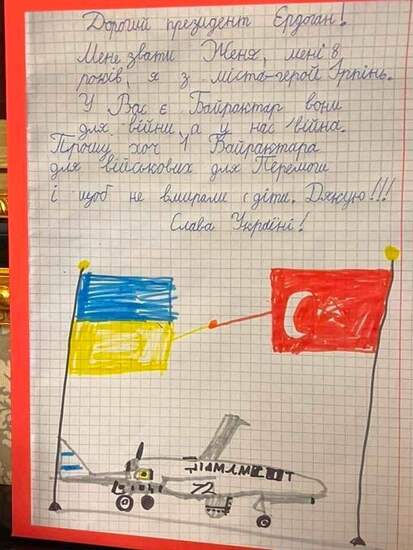 Дорогий президент Єрдоган!
Мене звати Женя, мені 8
років, я з міста-герой Ірпінь.
У Вас є Байрактар вони
для війни, а у нас війна.
Прошу хоч 1 Байрактара
для військових для Перемоги
і щоб не вмирали діти. Дякую!!!
Слава Україні!